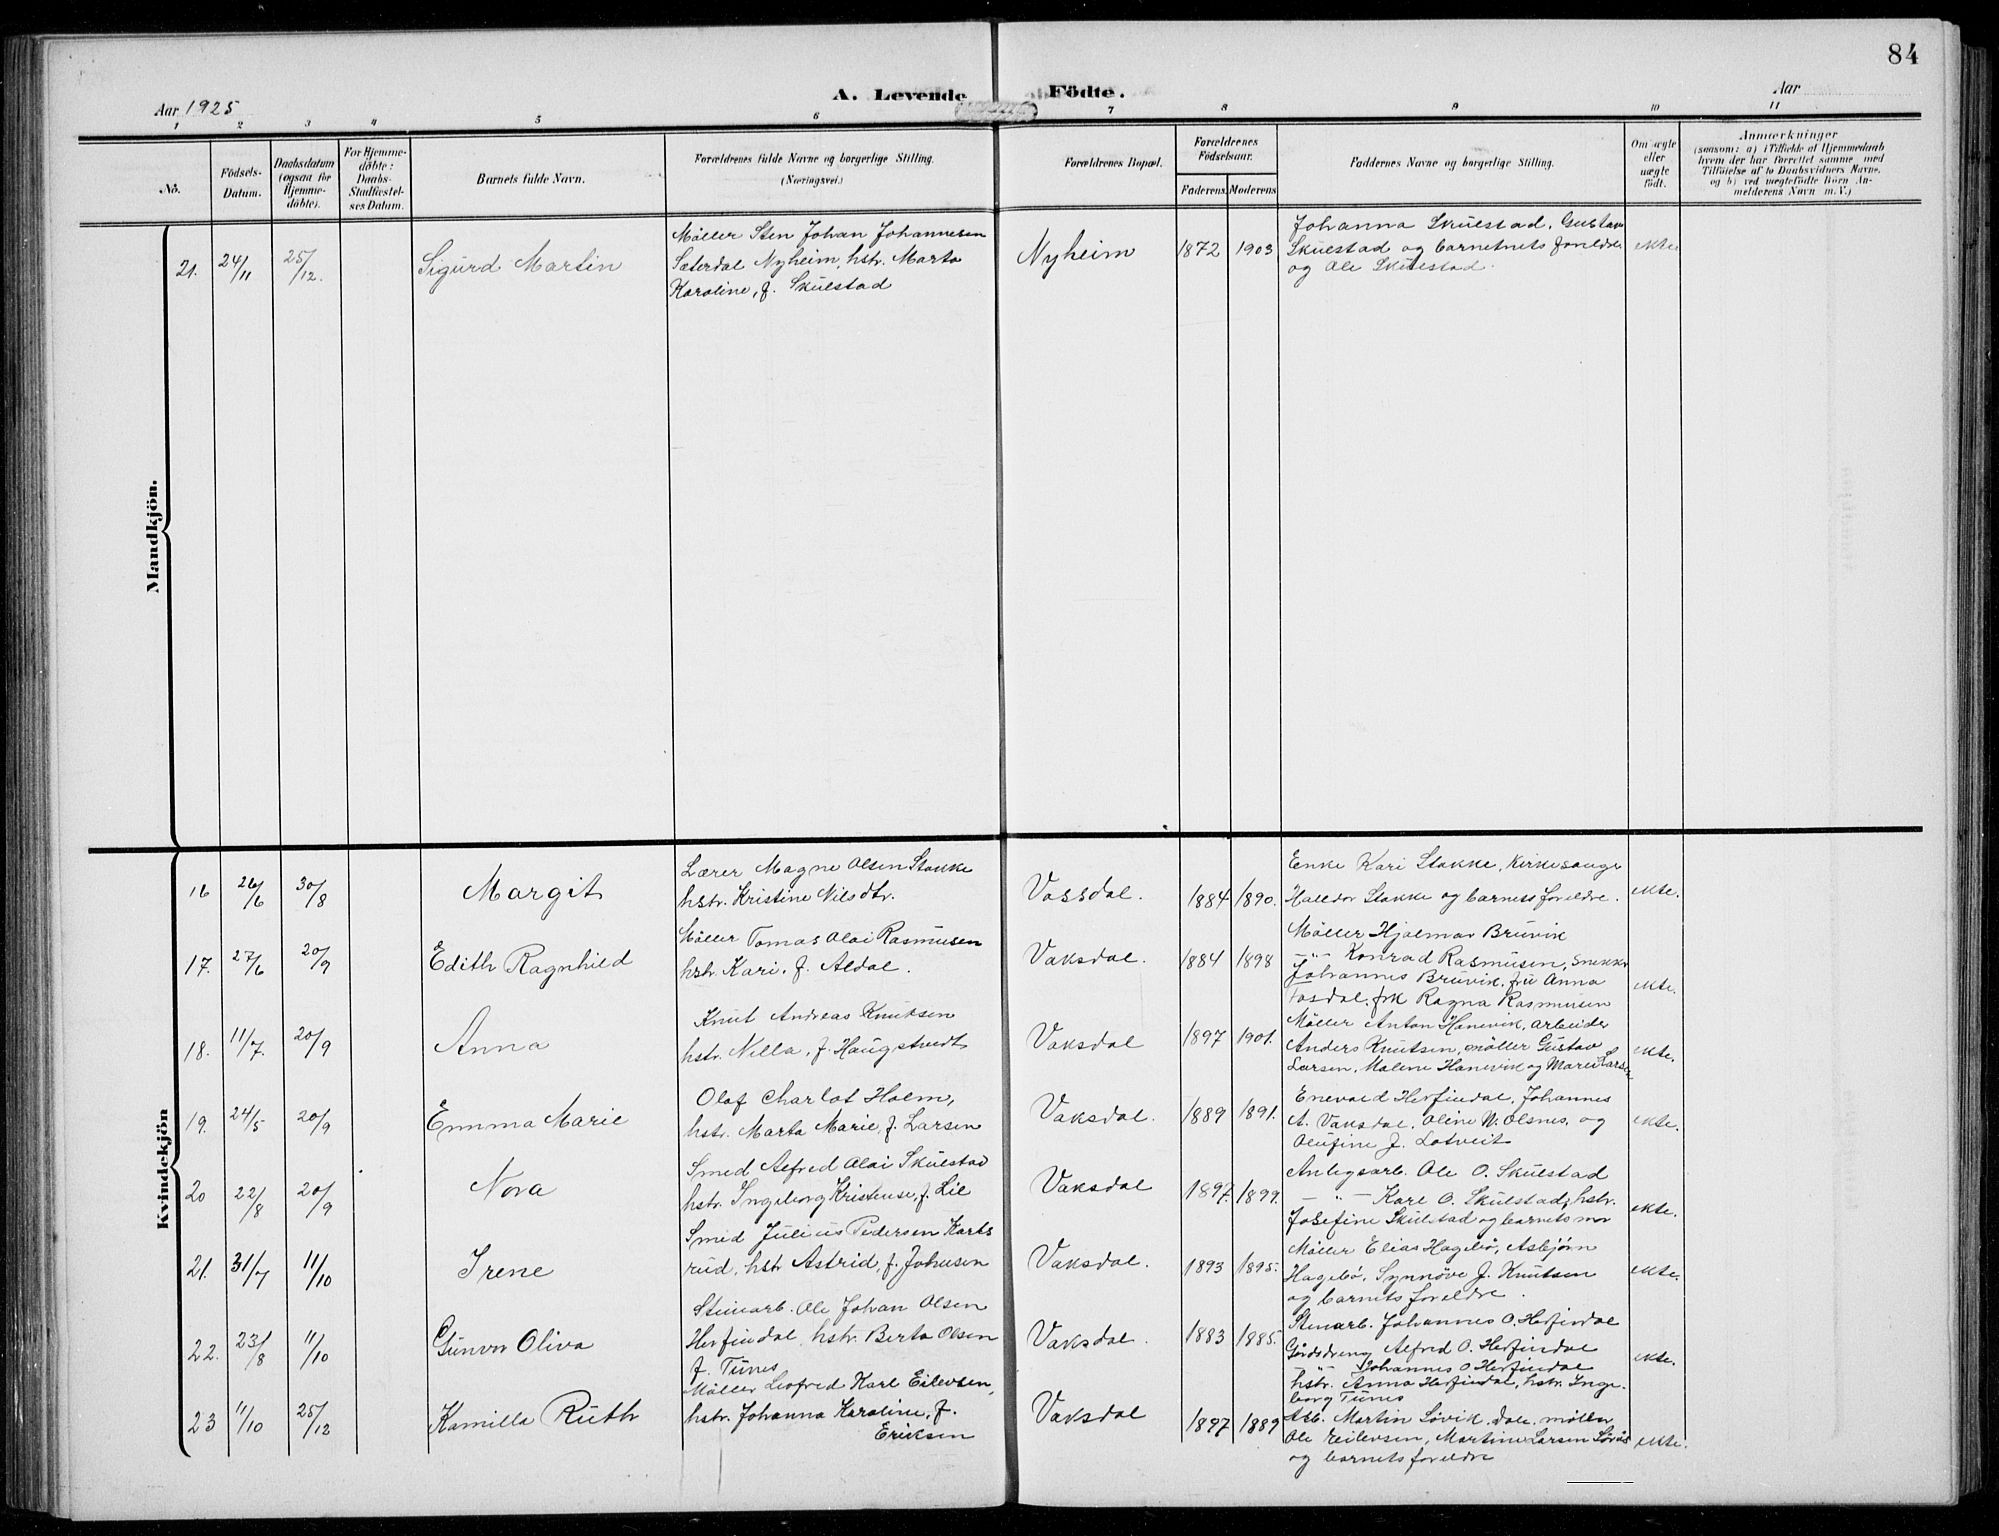 84
Aar 1925
A. Levende Födte.
Aar
1 2 3 4 5 6 7 8 9 10 11
No.
Födsels-Datum.
Daabsdatum (ogsaa for Hjemme-döbte).
For Hjemme-döbte: Daabs-Stadfæstel-ses Datum.
Barnets fulde Navn.
Forældrenes fulde Navne og borgerlige Stilling. (Næringsvei.)
Forældrenes Bopæl.
Forældrenes Födselsaar.
Faderens. Moderens.
Faddernes Navne og borgerlige Stilling.
Om ægte eller uægte födt.
Anmærkninger
(saasom: a) i Tilfælde af Hjemmedaab
hvem der har forrettet samme, med
Tilföielse af to Daabsvidners Navne,
og b) ved uægtefödte Börn An-
melderens Navn m. V.)
Mandkjön.
21. 24/11 25/12. Sigurd Martin
Möller Sten Johan Johannesen
Sæterdal Nyheim, hstr. Marta
Karoline, f. Skulstad
Nyheim 1872 1903
Johanna Skulestad, Gustav
Skulestad og barnetnets foreldre
og Ole Skulestad.
ekte
Kvindekjön
16 26/6 30/8 Margit
Lærer Magne Olsen Stakke
hstr. Kristine Nilsdtr.
Vassdal. 1884 1890.
Enke Kari Stakke, Kirkesange
Halldor Stakke og barnets foreldre.
ekte.
17. 27/6 20/9 Edith Ragnhild
Möller Tomas Olai Rasmusen
hstr. Kari, f. Aldal.
Vaksdal. 1884 1898
Möller Hjalmar Bruvik
—"— Konrad Rasmusen, snekker
Johannes Bruvik, fru Anna
Fosdal, frk Ragna Rasmusen
ekte.
18. 11/7. 20/9 Anna
Knut Andreas Knutsen
hstr. Nilla, f. Haugstvedt
Vaksdal 1897 1901.
Möller Anton Hanevik, arbeider
Anders Knutsen, möller Gustav
Larsen, Malene Hanevik og Marie Larsen
ekte.
19. 24/5 20/9 Emma Marie
Olaf Charlot Holm,
hstr. Marta Marie, f. Larsen
Vaksdal. 1889 1891.
Enevald Herfindal, Johannes
A. Vaksdal, Oline N. Olsnes, og
Olufine J. Lotveit
ekte.
20 22/8 20/9 Nora
Smed Alfred Olai Skulstad
hstr. Ingeborg Kristense, f. Lie
Vaksdal 1897. 1899.
Anlegsarb. Ole O. Skulstad
—"— Karl O. Skulstad, hstr.
Josefine Skulstad og barnets mor
ekte.
21. 31/7 11/10 Irene
Smed Julius Pedersen Karls
rud, hstr Astrid, f. Johnsen
Vaksdal. 1893 1895.
Möller Elias Hagebö, Asbjørn
Hagebö, Synnöve J. Knutsen
og barnets foreldre.
ekte.
22. 23/8 11/10 Gunvor Oliva
Steinarb. Ole Johan Olsen
Herfindal, hstr. Berta Olsen
f. Tunes
Vaksdal. 1883 1885.
Stenarb. Johannes O. Herfindal
Gårdsdreng Alfred O. Herfindal
—"— Johannes O Herfindal
hstr. Anna Herfindal, hstr. Inge-
borg Tunes
ekte.
23 11/10 25/12 Kamilla Ruth
Möller Leofred Karl Eilevsen,
hstr. Johanna Karoline, f.
Eriksen
Vaksdal 1897 1889
Arb. Martin Lövik, Dale, möller
Ole Eilevsen, Martine Larsen
og barnets foreldre
ekte.